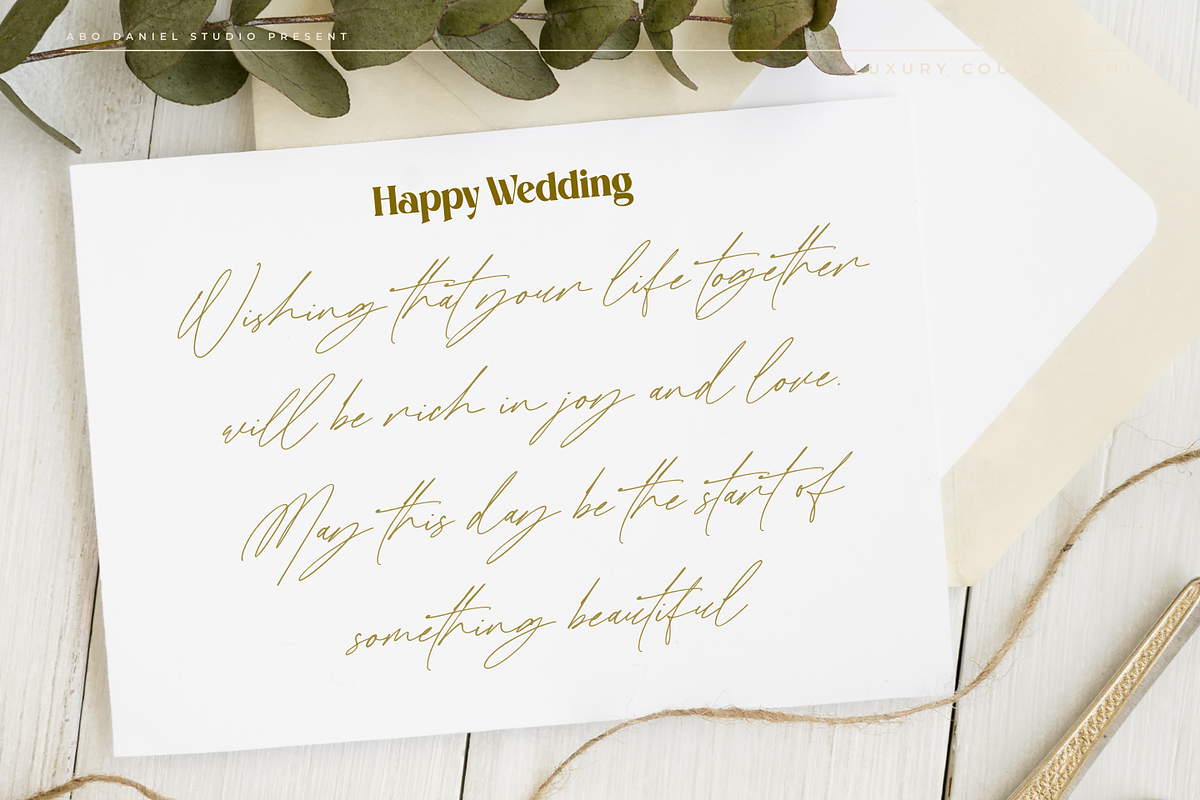 ABO DANIEL STUDIO PRESENT
LUXURY
Happy Wedding
Wishing that your life together
will be rich in joy and love.
May this day be the start of
something beautiful